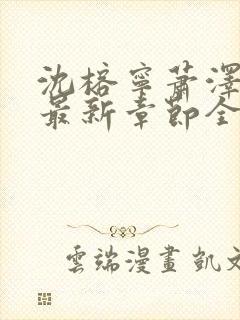 沈榕寧蕭澤
最新章節全
雲端漫畫 凱文